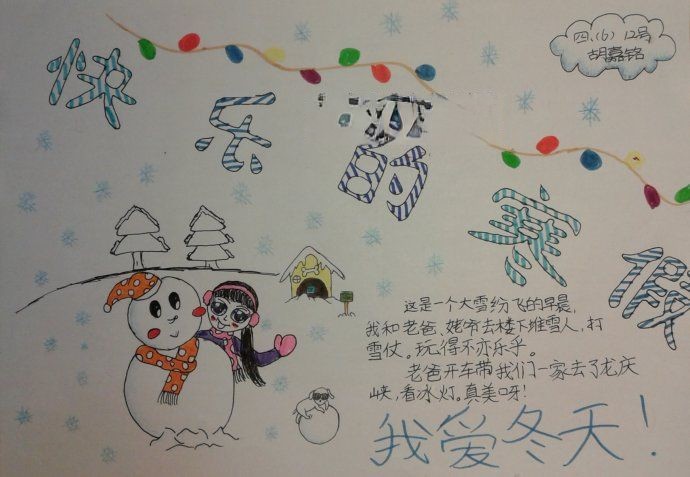 四.(6) 12号
胡嘉铭
快乐的寒假
这是一个大雪纷飞的早晨,
我和老爸、姥爷去楼下堆雪人,打
雪仗。玩得不亦乐乎。
老爸开车带我们一家去了龙庆
峡,看冰灯。真美呀!
我爱冬天!